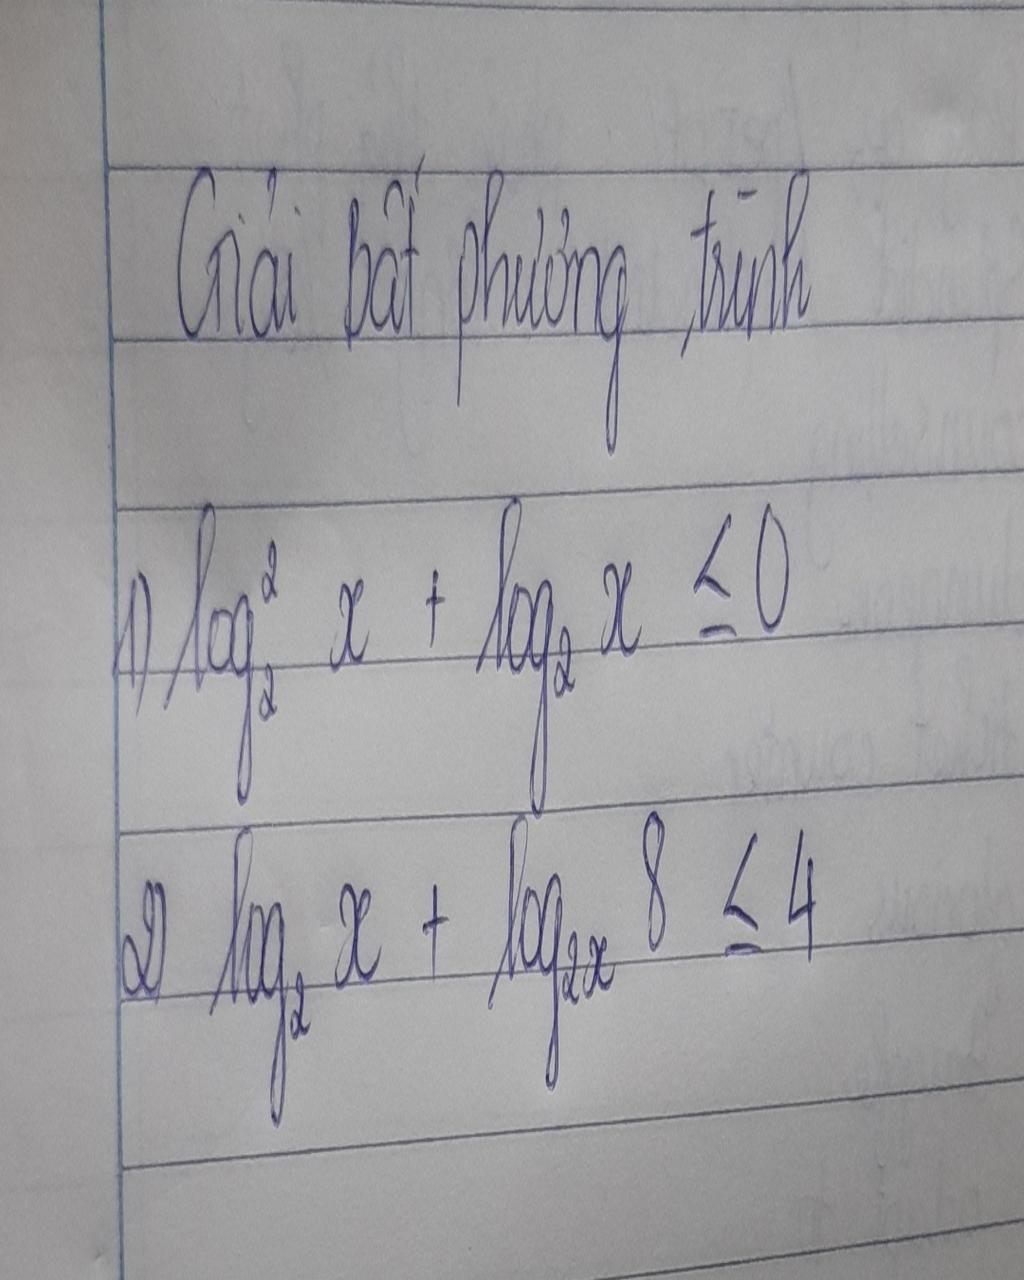 Giải bất phương trình
1) log₂² x + log₂ x ≤ 0
2) log₂ x + log₂ₓ 8 ≤ 4